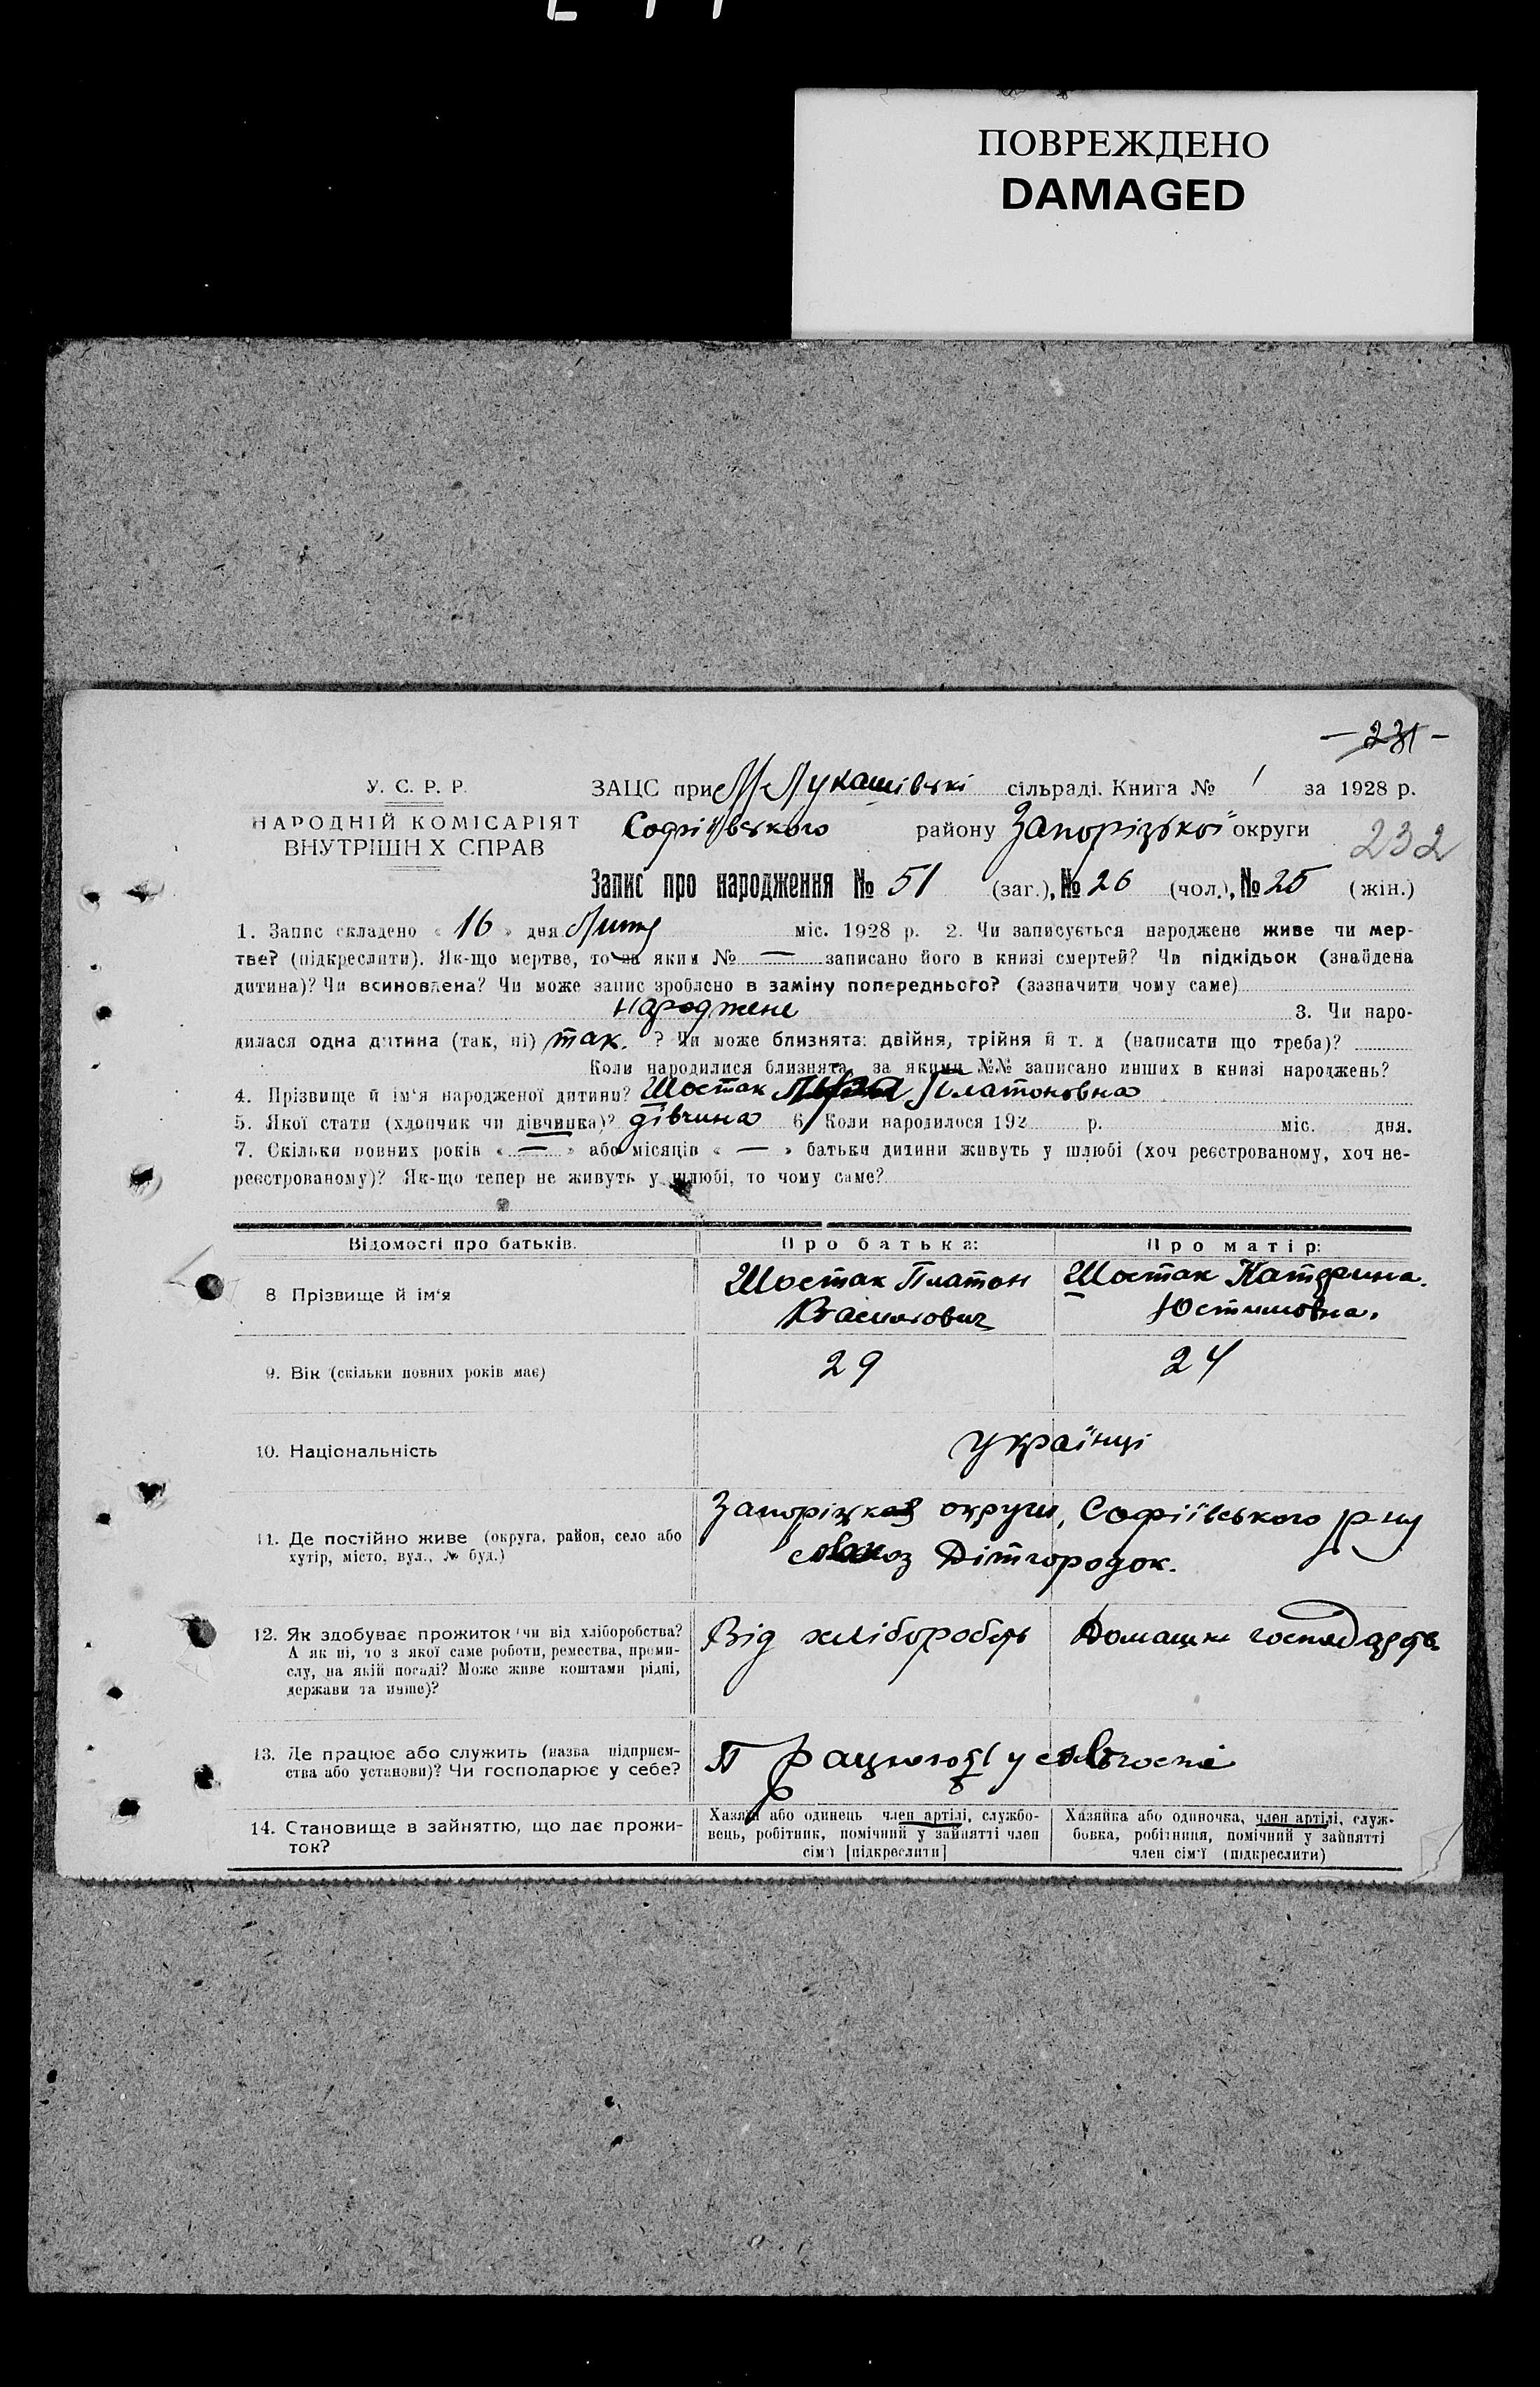 ПОВРЕЖДЕНО
DAMAGED
— 231 —
У. С. Р. Р.
НАРОДНІЙ КОМІСАРІЯТ
ВНУТРІШН Х СПРАВ
ЗАЦС при М Лукашівскі сільраді. Книга № 1 за 1928 р.
Софіївського району Запорізької округи
232
Запис про народження № 51 (заг.), № 26 (чол.), № 25 (жін.)
1. Запис складено « 16 » дня Липня міс. 1928 р. 2. Чи записується народжене живе чи мер-
тве? (підкреслити). Як-що мертве, то за яким № — записано його в книзі смертей? Чи підкідьок (знайдена
дитина)? Чи всиновлена? Чи може запис зроблено в заміну попереднього? (зазначити чому саме)
народжене 3. Чи наро-
дилася одна дитина (так, ні) так. ? Чи може близнята: двійня, трійня й т. д (написати що треба)?
Коли народилися близнята, за якими №№ записано инших в книзі народжень?
4. Прізвище й ім'я народженої дитини? Шостак Платоновна
5. Якої стати (хлопчик чи дівчинка)? дівчина 6. Коли народилося 192 р. міс. дня.
7. Скільки повних років « — » або місяців « — » батьки дитини живуть у шлюбі (хоч реєстрованому, хоч не-
реєстрованому)? Як-що тепер не живуть у шлюбі, то чому саме?
Відомості про батьків. Про батька: Про матір:
8 Прізвище й ім'я Шостак Платон Васильович Шостак Катерина Юстимовна.
9. Вік (скільки повних років має) 29 24
10. Національність українці
11. Де постійно живе (округа, район, село або
хутір, місто, вул., № буд.)
Запоріжкоя округи, Софіївського р-ну
совхоз Дітгородок.
12. Як здобуває прожиток (чи від хліборобства?
А як ні, то з якої саме роботи, ремества, проми-
слу, на якій посаді? Може живе коштами рідні,
держави та инше)?
Від хліборобств Домашнє господарств
13. Де працює або служить (назва підприєм-
ства або установи)? Чи господарює у себе?
Працюють у совгоспі
14. Становище в зайняттю, що дає прожи-
ток?
Хазяїн або одинець член артілі, службо-
вець, робітник, помічний у зайнятті член
сім'ї [підкреслити]
Хазяйка або одиночка, член артілі, служ-
бовка, робітниця, помічний у зайнятті
член сім'ї (підкреслити)